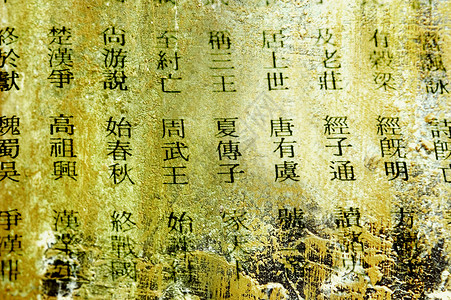 諷詠 詩既亡
有穀梁 經既明 方讀
及老莊 經子通 讀諸
居上世 唐有虞 號
稱三王 夏傳子 家天下
至紂亡 周武王 始誅
尚游說 始春秋 終戰國
楚漢爭 高祖興 漢業
終於獻 魏蜀吳 爭漢鼎